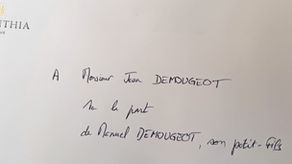 NTHIA
A Monsieur Jean DEMOUGEOT
de la part
de Manuel DEMOUGEOT, son petit-fils